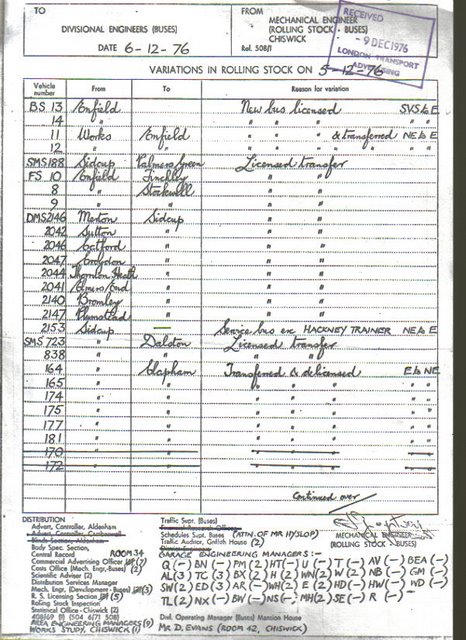 TO
DIVISIONAL ENGINEERS (BUSES)
DATE 6-12-76
FROM
MECHANICAL ENGINEER
(ROLLING STOCK - BUSES)
CHISWICK
Ref. 508/1
RECEIVED
- 9 DEC 1976
LONDON TRANSPORT
ADVERTISING
VARIATIONS IN ROLLING STOCK ON 5-12-76
Vehicle number From To Reason for variation
BS. 13 Enfield New bus licensed SVS to E
14 " " " " " "
11 Works Enfield " " " & transferred NE to E
12 " " " " " " " "
SMS 188 Sidcup Palmers Green Licensed transfer
FS. 10 Enfield Finchley " "
8 " Stockwell " "
9 " " " "
DMS 2146 Merton Sidcup " "
2042 Sutton " " "
2046 Catford " " "
2047 Croydon " " "
2044 Thornton Heath " " "
2041 Elmers End " " "
2140 Bromley " " "
2147 Plumstead " " "
2153 Sidcup — Service bus ex HACKNEY TRAINER NE to E
SMS 723 " Dalston Licensed transfer
838 " " " "
164 " Clapham Transferred & delicensed E to NE
165 " " " " " "
174 " " " " " "
175 " " " " " "
177 " " " " " "
181 " " " " " "
170 " " " " " "
172 " " " " " "
Continued over
MECHANICAL ENGINEER
(ROLLING STOCK - BUSES)
DISTRIBUTION
Advert. Controller, Aldenham
Body Spec. Section,
Central Record ROOM 34
Commercial Advertising Officer (7)
Costs Office (Mech. Engr.-Buses)
Scientific Adviser (2)
Distribution Services Manager
Mech. Engr. (Development - Buses) (3)
R. S. Licensing Section (5)
Rolling Stock Inspection
Statistical Office - Chiswick (2)
AREA ENGINEERING MANAGERS (9)
WORKS STUDY, CHISWICK (1)
Traffic Supt. (Buses)
Schedules Supt. (Buses) (ATTN. OF MR HYSLOP)
Traffic Auditor, Griffith House (2)
GARAGE ENGINEERING MANAGERS :-
Q (-) BN (-) PM (2) HT (-) U (-) T (-) AV (-) BEA (-)
AL (3) TC (3) BX (2) H (2) WN (2) N (2) NB (-) GM (-)
SW (2) ED (3) AR (-) WH (2) E (2) HD (-) HW (-) WD (-)
TL (2) NX (-) BW (-) NS (-) MH (2) SE (-) R (-)
Divl. Operating Manager (Buses) Mansion House
MR D. EVANS (ROOM 42, CHISWICK)